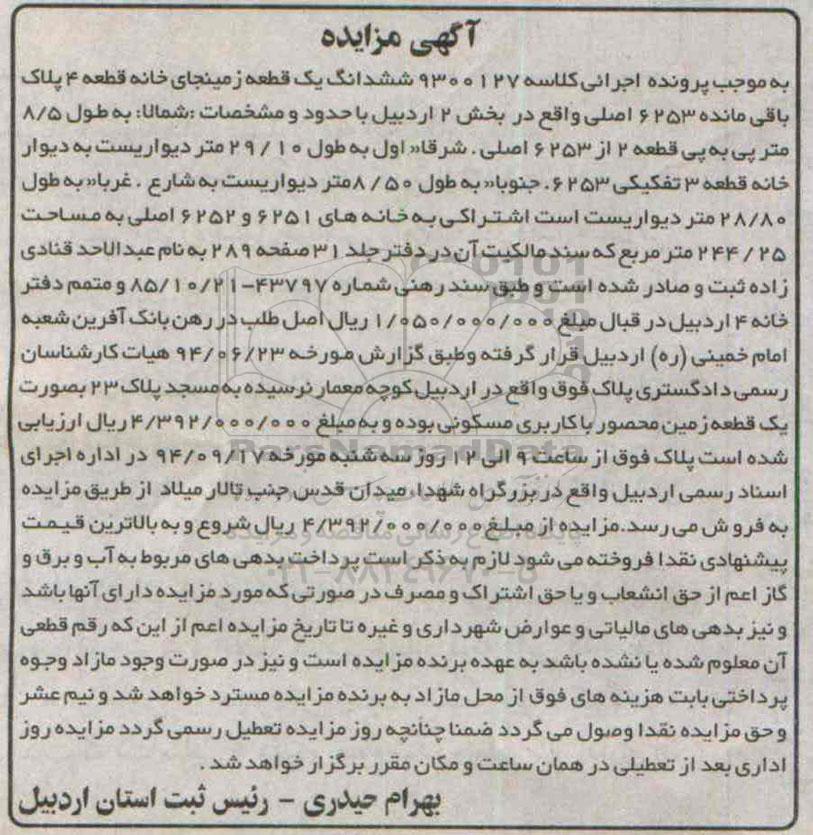 آگهی مزایده
به موجب پرونده اجرائی کلاسه ۹۳۰۰۱۲۷ ششدانگ یک قطعه زمینجای خانه قطعه ۴ پلاک
باقی مانده ۶۲۵۳ اصلی واقع در بخش ۲ اردبیل با حدود و مشخصات :شمالا: به طول ۸/۵
متر پی به پی قطعه ۲ از ۶۲۵۳ اصلی . شرقا« اول به طول ۲۹/۱۰ متر دیواریست به دیوار
خانه قطعه ۳ تفکیکی ۶۲۵۳. جنوبا« به طول ۸/۵۰ متر دیواریست به شارع . غربا« به طول
۲۸/۸۰ متر دیواریست است اشتراکی به خانه های ۶۲۵۱ و ۶۲۵۲ اصلی به مساحت
۲۴۴/۲۵ متر مربع که سند مالکیت آن در دفتر جلد ۳۱ صفحه ۲۸۹ به نام عبدالاحد قنادی
زاده ثبت و صادر شده است و طبق سند رهنی شماره ۴۳۷۹۷-۸۵/۱۰/۲۱ و متمم دفتر
خانه ۴ اردبیل در قبال مبلغ ۱/۰۵۰/۰۰۰/۰۰۰ ریال اصل طلب در رهن بانک آفرین شعبه
امام خمینی (ره) اردبیل قرار گرفته وطبق گزارش مورخه ۹۴/۰۶/۲۳ هیات کارشناسان
رسمی دادگستری پلاک فوق واقع در اردبیل کوچه معمار نرسیده به مسجد پلاک ۲۳ بصورت
یک قطعه زمین محصور با کاربری مسکونی بوده و به مبلغ ۴/۳۹۲/۰۰۰/۰۰۰ ریال ارزیابی
شده است پلاک فوق از ساعت ۹ الی ۱۲ روز سه شنبه مورخه ۹۴/۰۹/۱۷ در اداره اجرای
اسناد رسمی اردبیل واقع در بزرگراه شهداء میدان قدس جنب تالار میلاد از طریق مزایده
به فروش می رسد.مزایده از مبلغ ۴/۳۹۲/۰۰۰/۰۰۰ ریال شروع و به بالاترین قیمت
پیشنهادی نقدا فروخته می شود لازم به ذکر است پرداخت بدهی های مربوط به آب و برق و
گاز اعم از حق انشعاب و یا حق اشتراک و مصرف در صورتی که مورد مزایده دارای آنها باشد
و نیز بدهی های مالیاتی و عوارض شهرداری و غیره تا تاریخ مزایده اعم از این که رقم قطعی
آن معلوم شده یا نشده باشد به عهده برنده مزایده است و نیز در صورت وجود مازاد وجوه
پرداختی بابت هزینه های فوق از محل مازاد به برنده مزایده مسترد خواهد شد و نیم عشر
و حق مزایده نقدا وصول می گردد ضمنا چنانچه روز مزایده تعطیل رسمی گردد مزایده روز
اداری بعد از تعطیلی در همان ساعت و مکان مقرر برگزار خواهد شد .
بهرام حیدری – رئیس ثبت استان اردبیل
ParsNamadData
۰۲۱-۸۸۳۴۹۶۷۰-۵